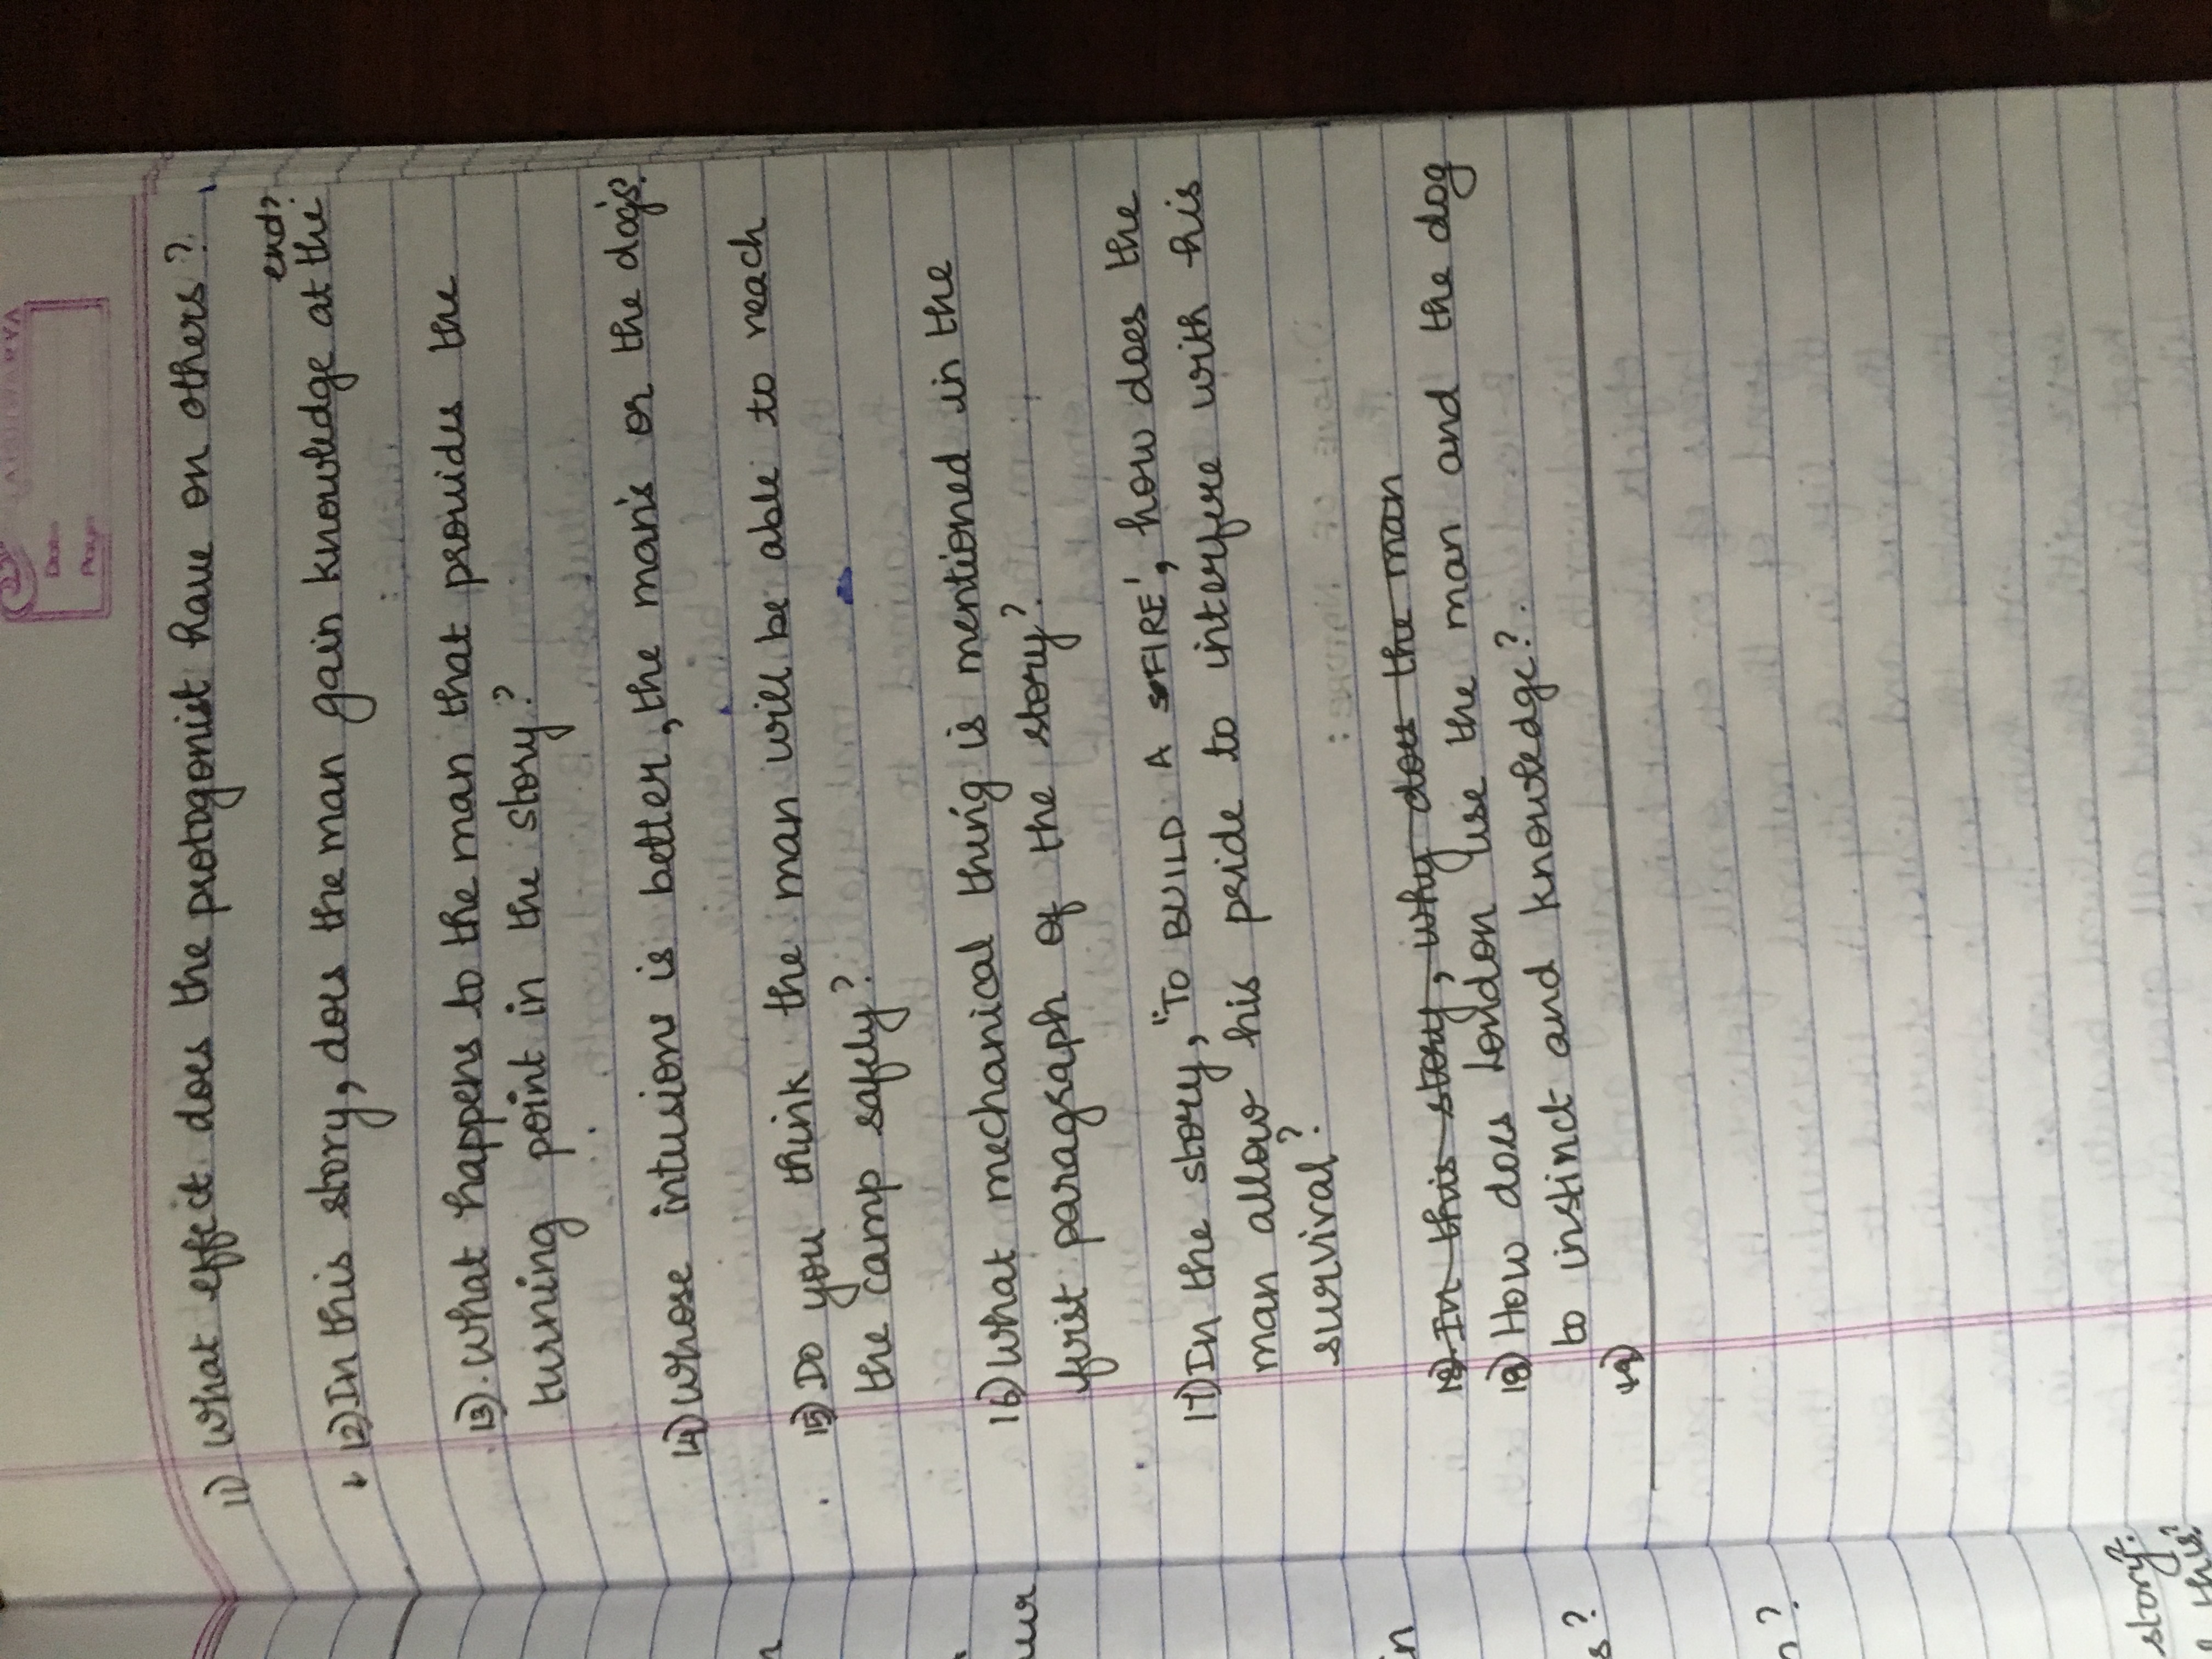 AISHWARYA
Date
Page
11) What effect does the protogonist have on others?
end?
12) In this story, does the man gain knowledge at the
13). What happens to the man that provides the
turning point in the story?
14) Whose intusions is better, the man's or the dog's?
15) Do you think the man will be able to reach
the camp safely?
16) What mechanical thing is mentioned in the
first paragraph of the story?
17) In the story, "TO BUILD A FIRE', how does the
man allow his pride to interfere with his
survival?
18). In this story, why does the man
18) How does London use the man and the dog
to instinct and knowledge?.
19)
s?
story?
this?